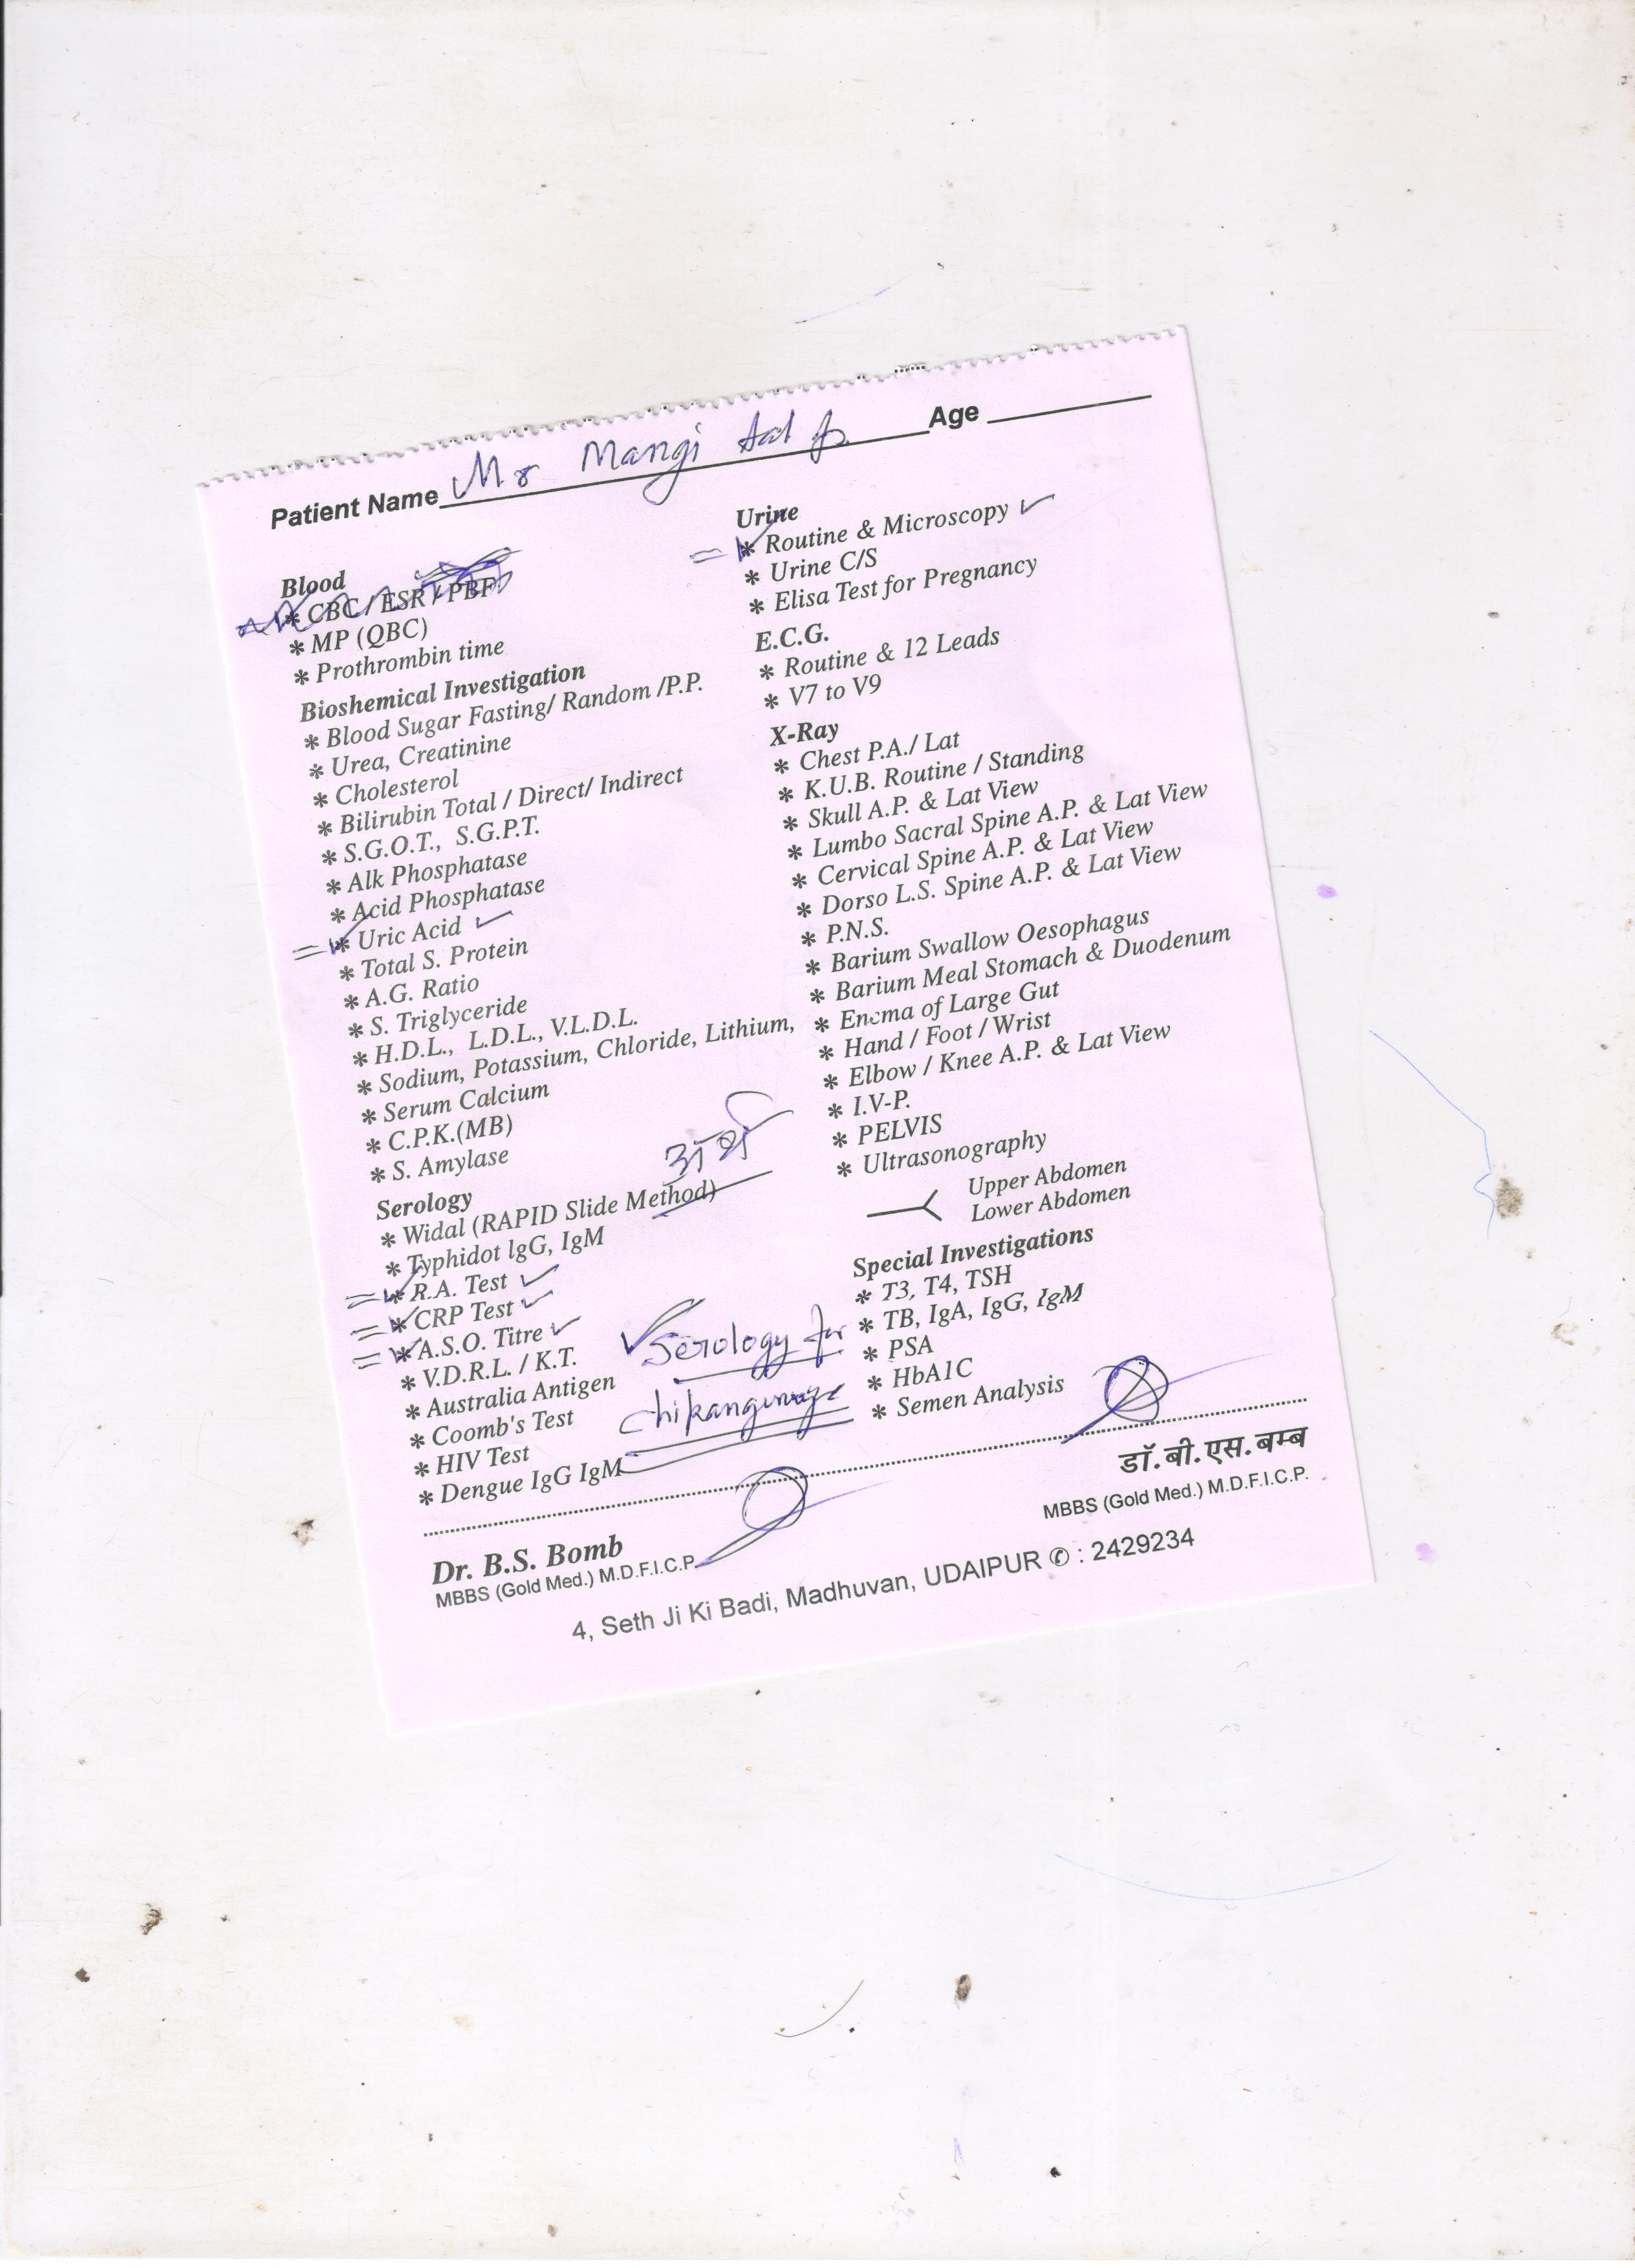 Patient Name Mr Mangi Lal Jn Age
Blood
* CBC / ESR / PBF
* MP (QBC)
* Prothrombin time
Bioshemical Investigation
* Blood Sugar Fasting/ Random /P.P.
* Urea, Creatinine
* Cholesterol
* Bilirubin Total / Direct/ Indirect
* S.G.O.T., S.G.P.T.
* Alk Phosphatase
* Acid Phosphatase
* Uric Acid ✓
* Total S. Protein
* A.G. Ratio
* S. Triglyceride
* H.D.L., L.D.L., V.L.D.L.
* Sodium, Potassium, Chloride, Lithium,
* Serum Calcium
* C.P.K.(MB)
* S. Amylase
Serology
* Widal (RAPID Slide Method)
* Typhidot lgG, IgM
* R.A. Test ✓
* CRP Test ✓
* A.S.O. Titre ✓
* V.D.R.L. / K.T.
* Australia Antigen
* Coomb's Test
* HIV Test
* Dengue IgG IgM
✓ Serology for
chikangunya
Urine
* Routine & Microscopy ✓
* Urine C/S
* Elisa Test for Pregnancy
E.C.G.
* Routine & 12 Leads
* V7 to V9
X-Ray
* Chest P.A./ Lat
* K.U.B. Routine / Standing
* Skull A.P. & Lat View
* Lumbo Sacral Spine A.P. & Lat View
* Cervical Spine A.P. & Lat View
* Dorso L.S. Spine A.P. & Lat View
* P.N.S.
* Barium Swallow Oesophagus
* Barium Meal Stomach & Duodenum
* Enema of Large Gut
* Hand / Foot / Wrist
* Elbow / Knee A.P. & Lat View
* I.V-P.
* PELVIS
* Ultrasonography
Upper Abdomen
Lower Abdomen
Special Investigations
* T3, T4, TSH
* TB, IgA, IgG, IgM
* PSA
* HbA1C
* Semen Analysis
डॉ. बी. एस. बम्ब
MBBS (Gold Med.) M.D.F.I.C.P.
Dr. B.S. Bomb
MBBS (Gold Med.) M.D.F.I.C.P.
4, Seth Ji Ki Badi, Madhuvan, UDAIPUR ✆ : 2429234